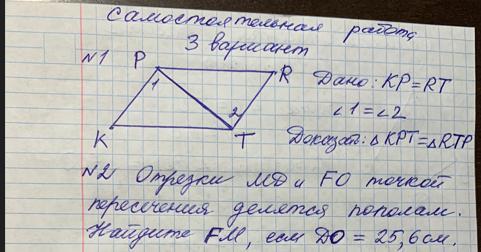 Самостоятельная работа
3 вариант
N1 P R Дано: KP = RT
1 2 ∠1 = ∠2
K T Доказат: △KPT = △RTP
N2 Отрезки MD и FO точкой
пересечения делятся пополам.
Найдите FM, если DO = 25,6 см.